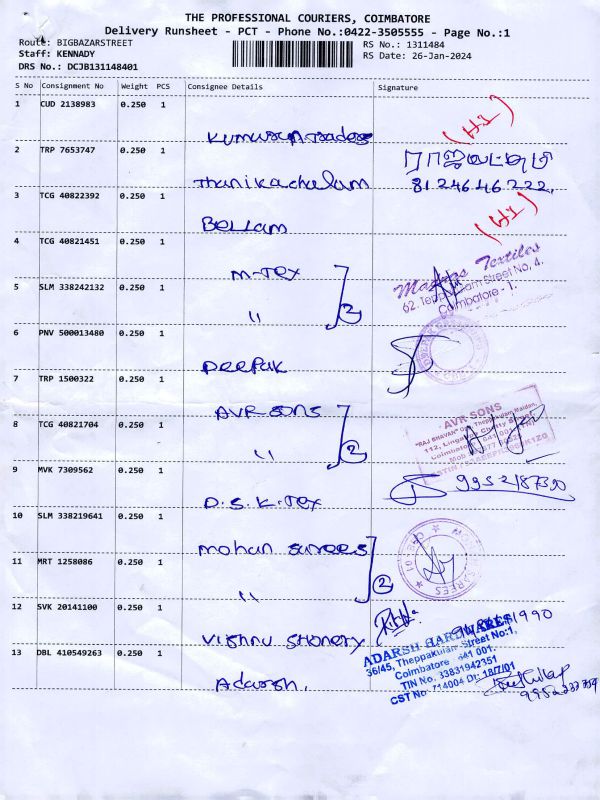 THE PROFESSIONAL COURIERS, COIMBATORE
Delivery Runsheet - PCT - Phone No.:0422-3505555 - Page No.:1
Route: BIGBAZARSTREET
Staff: KENNADY
DRS No.: DCJB131148401
RS No.: 1311484
RS Date: 26-Jan-2024
S No Consignment No Weight PCS Consignee Details Signature
1 CUD 2138983 0.250 1
Kumaran Traders (H1)
2 TRP 7653747 0.250 1
Thanikachalam 8124646222
3 TCG 40822392 0.250 1
Bellam (H1)
4 TCG 40821451 0.250 1
M-Tex
Madras Textiles
62, Teppakulam Street No, 4.
Coimbatore - 1.
5 SLM 338242132 0.250 1
" 2
6 PNV 500013480 0.250 1
Deepak
7 TRP 1500322 0.250 1
AVR Sons
AVR SONS
"RAJ BHAVAN"
112, Lingappa Chetty Street
Coimbatore - 641 001
8 TCG 40821704 0.250 1
" 2
9 MVK 7309562 0.250 1
D.S.K.Tex
10 SLM 338219641 0.250 1
Mohan Sarees
11 MRT 1258086 0.250 1
" 2
12 SVK 20141100 0.250 1
Vishnu Stionery
13 DBL 410549263 0.250 1
Adarsh.
ADARSH HARDWARES
36/45, Theppakulam Street No:1,
Coimbatore 641 001.
TIN No. 33831942351
CST No. 714004 Dt: 18/7/01